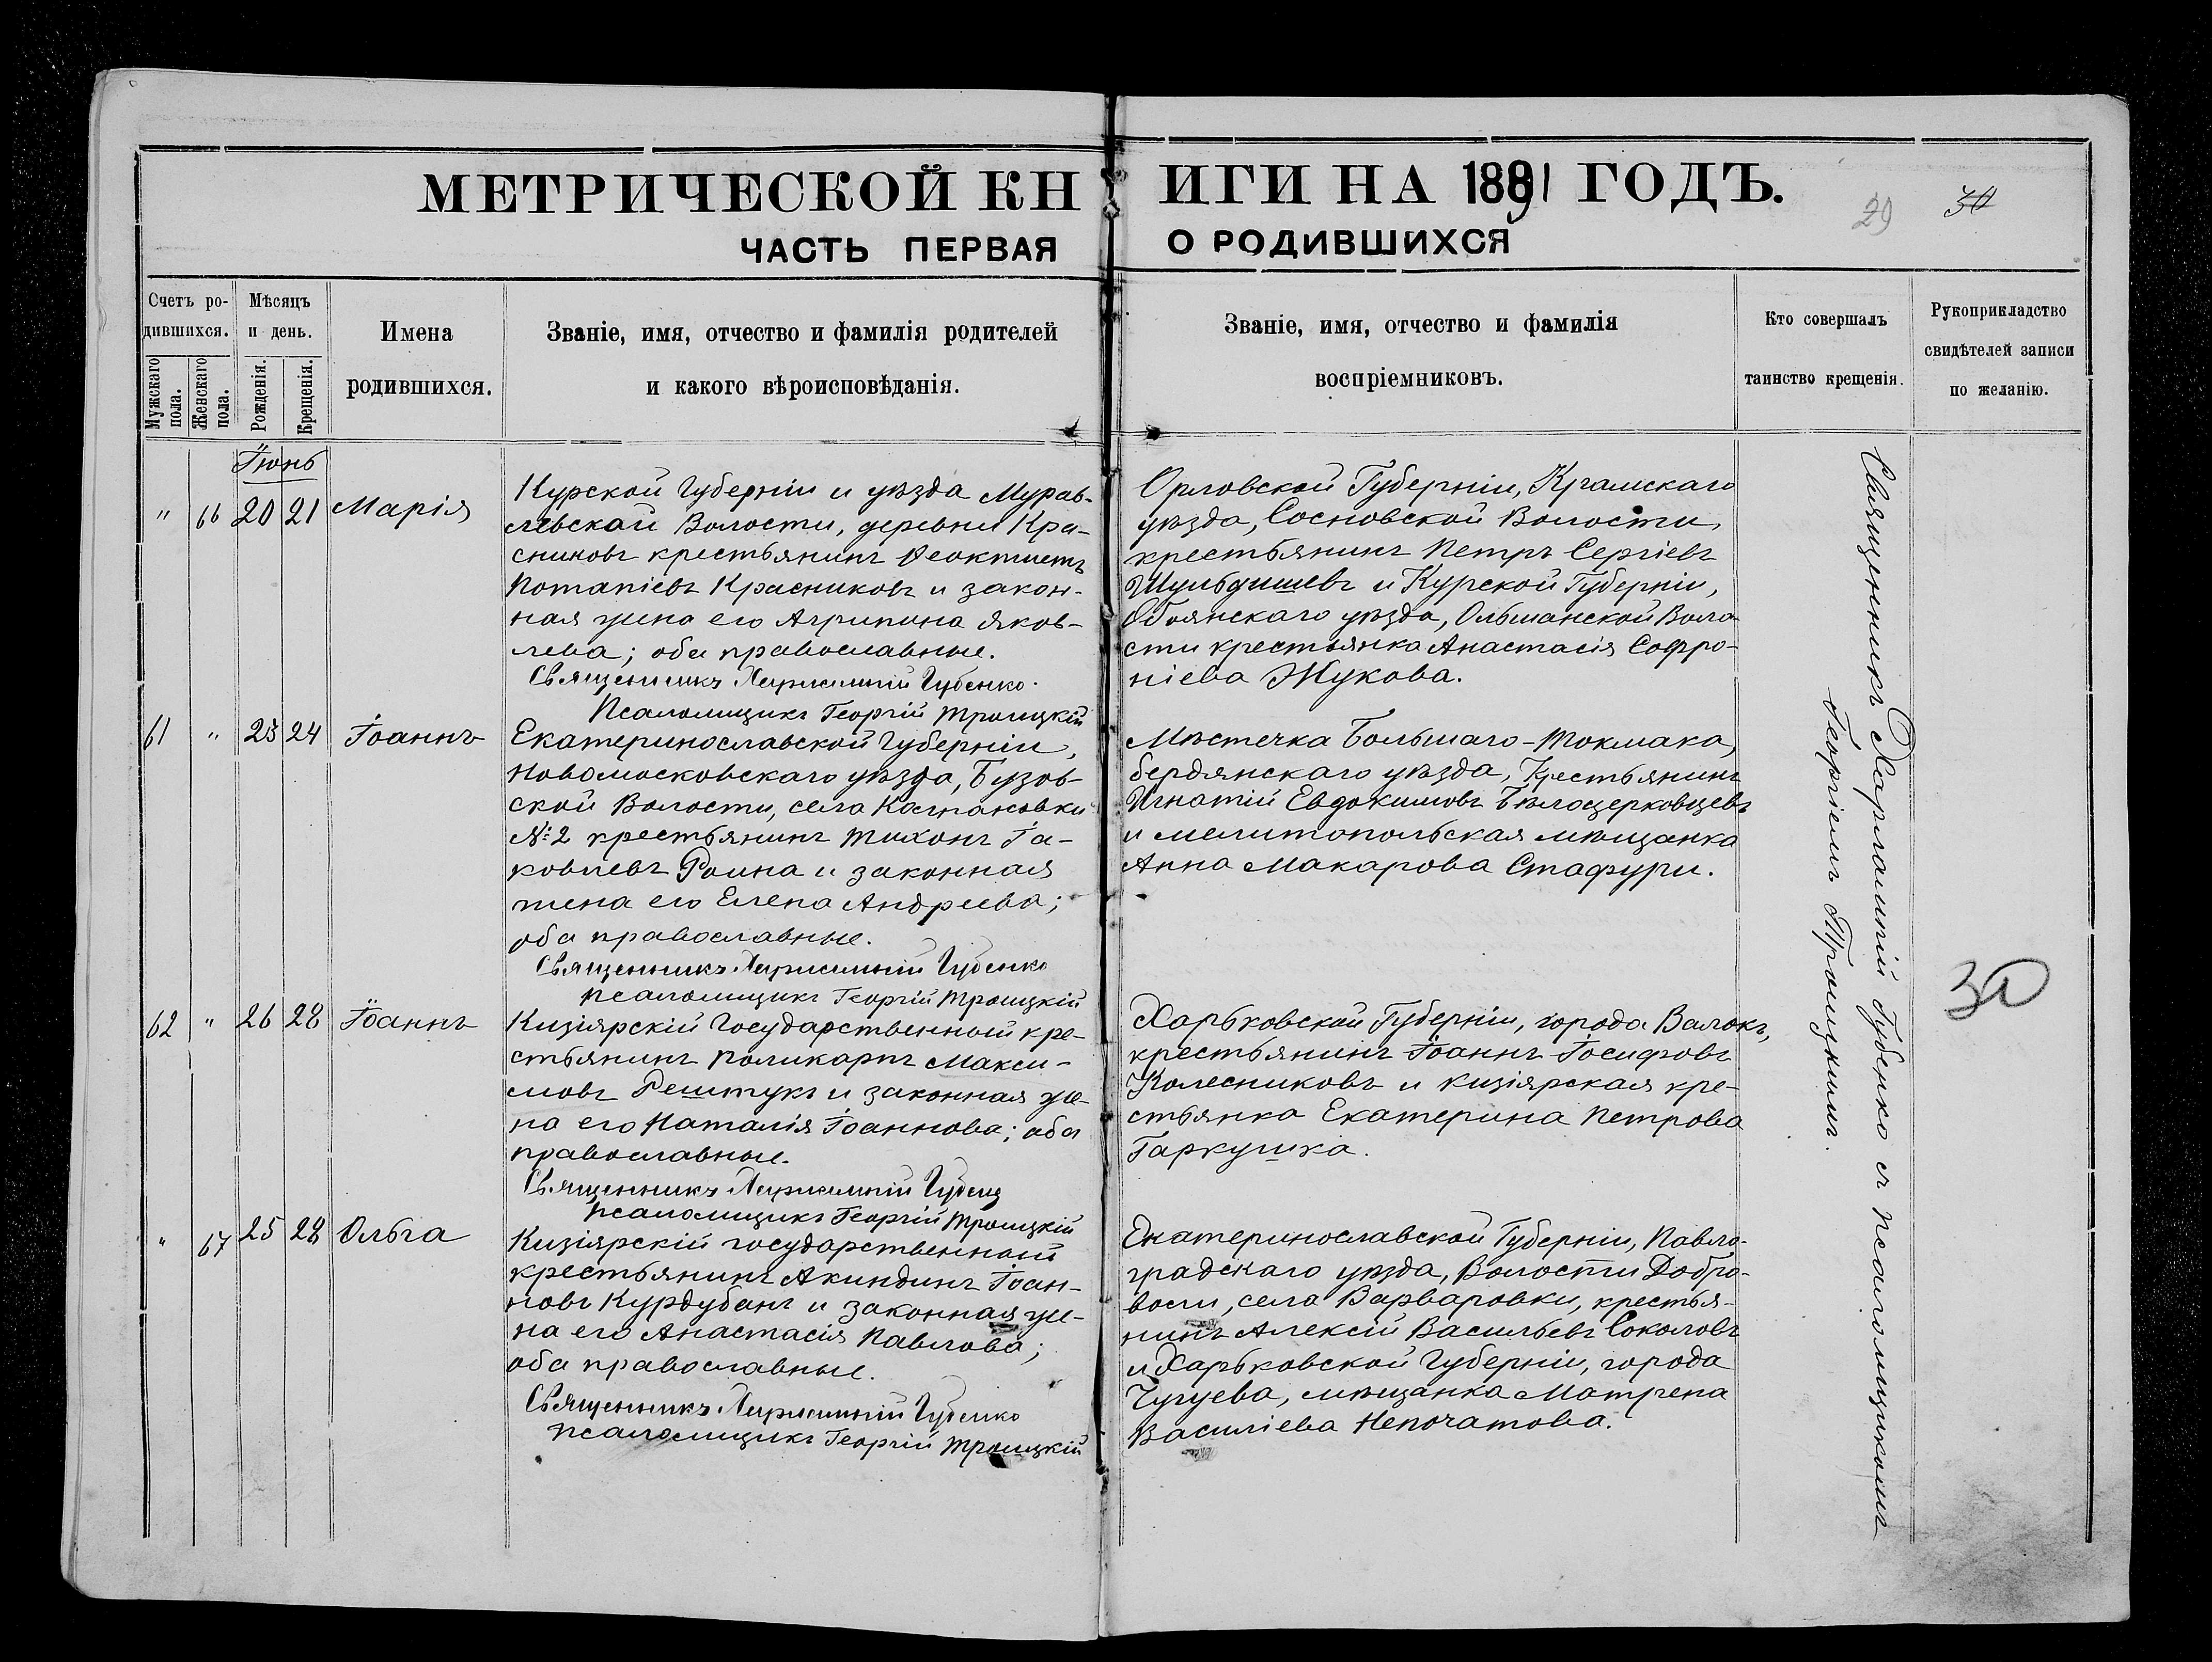 МЕТРИЧЕСКОЙ КНИГИ НА 1891 ГОДЪ.
29 30
ЧАСТЬ ПЕРВАЯ О РОДИВШИХСЯ
Счетъ ро-
дившихся.
Мужскаго пола.
Женскаго пола.
Мѣсяцъ
и день.
Рожденія.
Крещенія.
Имена
родившихся.
Званіе, имя, отчество и фамилія родителей
и какого вѣроисповѣданія.
Званіе, имя, отчество и фамилія
воспріемниковъ.
Кто совершалъ
таинство крещенія.
Рукоприкладство
свидѣтелей записи
по желанію.
Іюнь
" 66 20 21 Марія
Курской Губерніи и уѣзда Мурав-
левской Волости, деревни Кра-
сниковъ крестьянинъ Ѳеоктистъ
Потапіевъ Красниковъ и закон-
ная жена его Агрипина Яков-
лева; оба православные.
Священникъ Харлампій Губенко.
Псаломщикъ Георгій Троицкій
Орловской Губерніи, Крамскаго
уѣзда, Сосновской Волости,
крестьянинъ Петръ Сергіевъ
Шульдишевъ и Курской Губерніи,
Обоянскаго уѣзда, Ольшанской Воло-
сти крестьянка Анастасія Софро-
ніева Жукова.
61 " 23 24 Іоаннъ
Екатеринославской Губерніи,
Новомосковскаго уѣзда, Бузов-
ской Волости, села Каспановки
№2 крестьянинъ Тихонъ Іа-
ковлевъ Роина и законная
жена его Елена Андреева;
оба православные.
Священникъ Харлампій Губенко
Псаломщикъ Георгій Троицкій
Мѣстечка Большаго-Токмака,
бердянскаго уѣзда, Крестьянинъ
Игнатій Евдокимовъ Бѣлоцерковцевъ
и мелитопольская мѣщанка
Анна Макарова Стафури.
62 " 26 28 Іоаннъ
Кизіярскій Государственной кре-
стьянинъ Поликарпъ Макси-
мовъ Рештукъ и законная же-
на его Наталія Іоаннова; оба
православные.
Священникъ Харлампій Губенко
Псаломщикъ Георгій Троицкій
Харьковской Губерніи, города Валокъ,
крестьянинъ Іоаннъ Іосифовъ
Колесниковъ и кизіярская кре-
стьянка Екатерина Петрова
Гаркушка.
" 67 25 28 Ольга
Кизіярскій государственной
крестьянинъ Акиндинъ Іоан-
новъ Курдубанъ и законная же-
на его Анастасія Павлова;
оба православные.
Священникъ Харлампій Губенко
Псаломщикъ Георгій Троицкій
Екатеринославской Губерніи, Павло-
градскаго уѣзда, Волости Добро-
воли, села Варваровки, крестья-
нинъ Алексій Васильевъ Соколовъ
и Харьковской Губерніи, города
Чугуева, мѣщанка Матрена
Василіева Непочатова.
Священникъ Харлампій Губенко съ псаломщикомъ
Георгіемъ Троицкимъ.
30